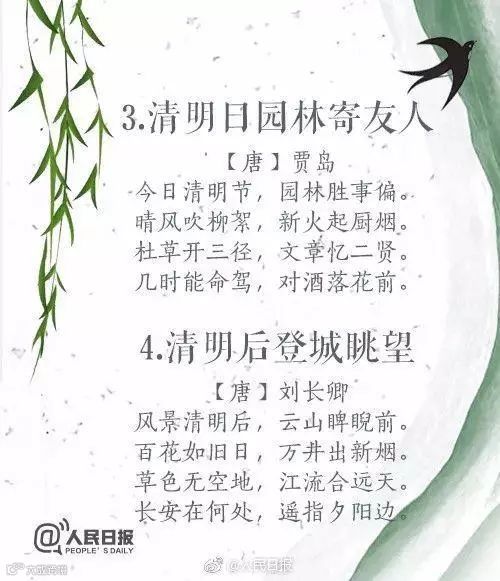 3.清明日园林寄友人
【唐】贾岛
今日清明节，园林胜事偏。
晴风吹柳絮，新火起厨烟。
杜草开三径，文章忆二贤。
几时能命驾，对酒落花前。
4.清明后登城眺望
【唐】刘长卿
风景清明后，云山睥睨前。
百花如旧日，万井出新烟。
草色无空地，江流合远天。
长安在何处，遥指夕阳边。
@人民日报
PEOPLE'S DAILY
@人民日报